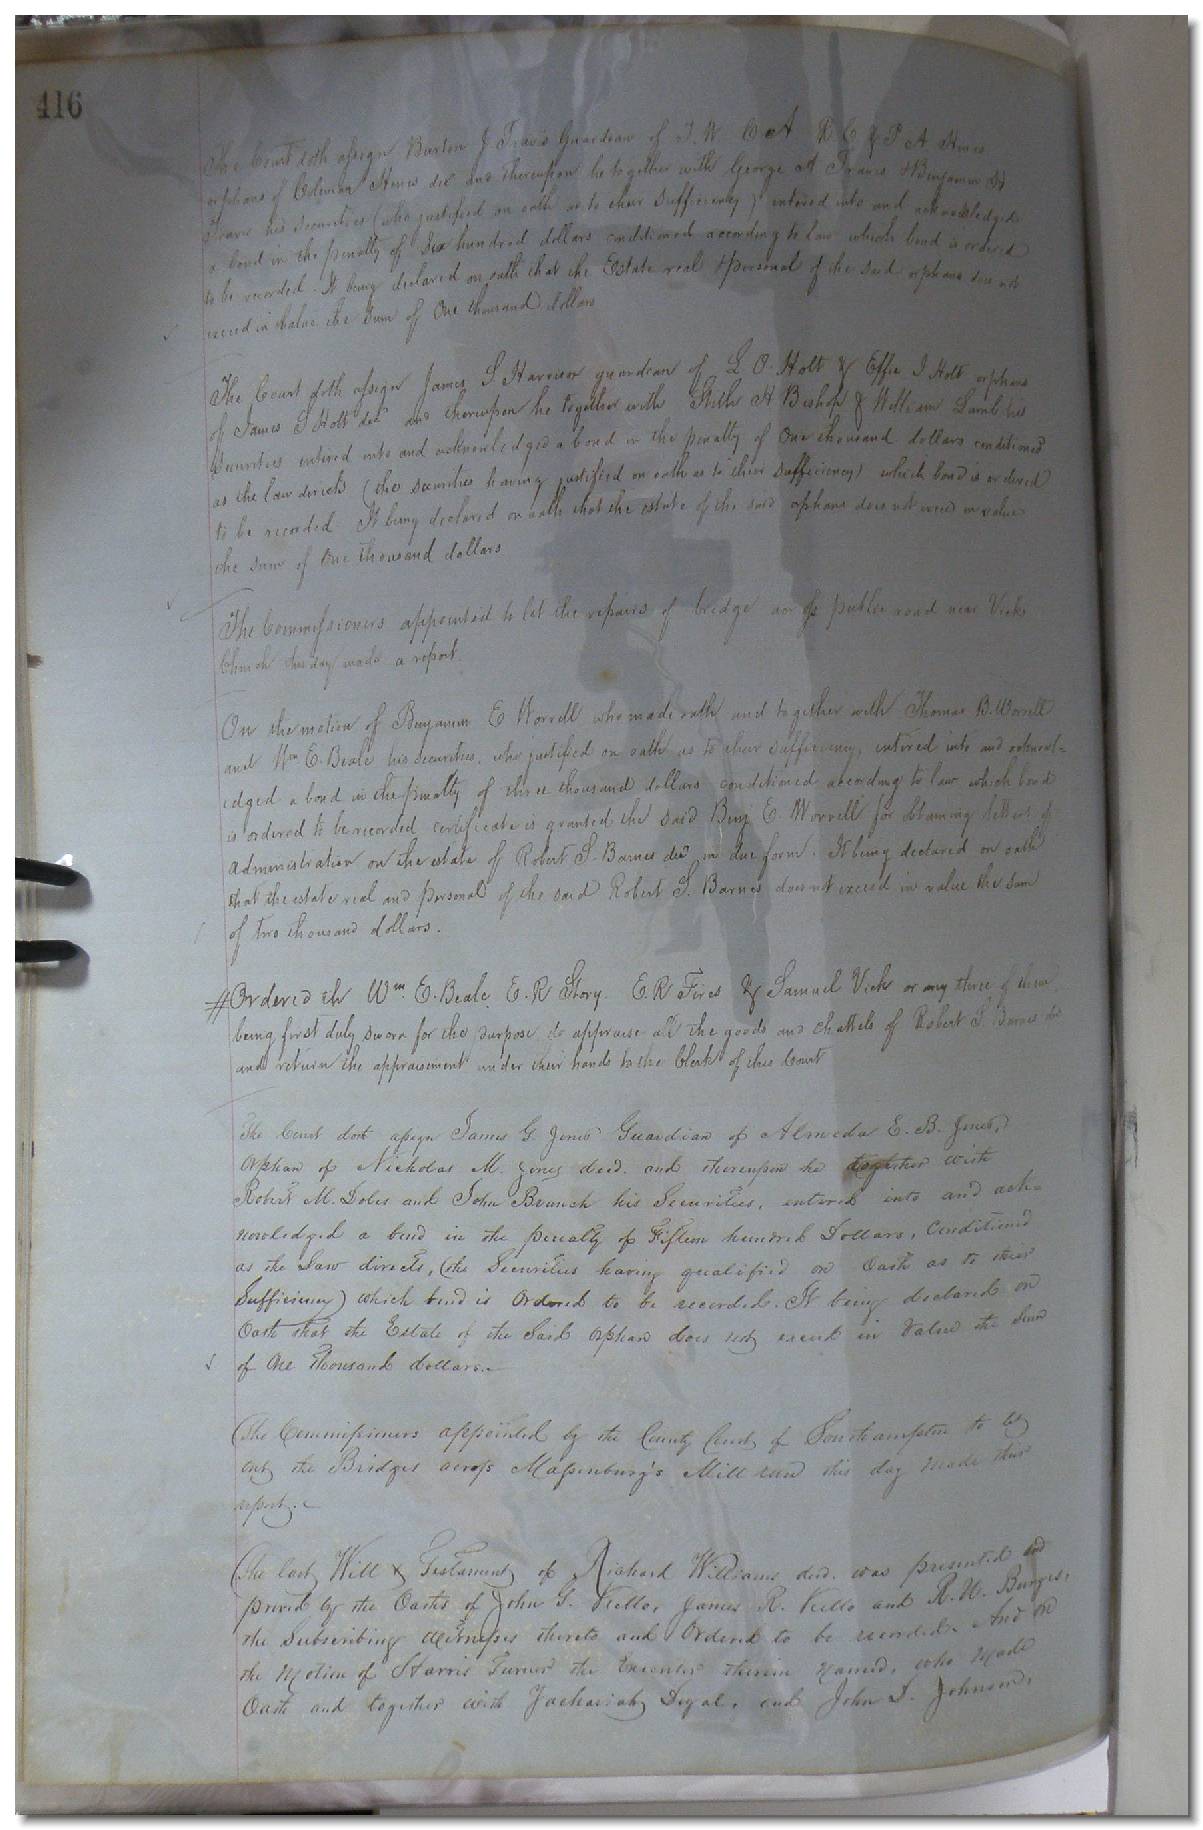 416
The Court doth assign Burton J Travis Guardian of T. W. C A R C & P A
orphans of Coleman dec and thereupon he together with George A Travis & Benjamin
Travis his securities (who justified on oath as to their sufficiency) entered into and acknowledged
a bond in the penalty of Six hundred dollars conditioned according to law which bond is ordered
to be recorded. It being declared on oath that the Estate real & personal of the said orphans does not
exceed in value the sum of One thousand dollars
The Court doth assign James S Harrison guardian of L O. Holt & Effie I Holt orphans
of James S Holt decd and thereupon he together with Stith H Bishop & William Lamb his
securities entered into and acknowledged a bond in the penalty of One thousand dollars conditioned
as the law directs (the securities having justified on oath as to their sufficiency) which bond is ordered
to be recorded It being declared on oath that the estate of the said orphans does not exceed in value
the sum of One thousand dollars.
The Commissioners appointed to let the repairs of bridge across public road near Vicks
Church this day made a report.
On the motion of Benjamin E Worrell who made oath and together with Thomas B. Worrell
and Wm E. Beale his securities, who justified on oath as to their sufficiency, entered into and acknowl=
edged a bond in the penalty of three thousand dollars conditioned according to law which bond
is ordered to be recorded certificate is granted the said Benj E. Worrell for obtaining letters of
Administration on the estate of Robert S. Barnes decd in due form. It being declared on oath
that the estate real and personal of the said Robert S. Barnes does not exceed in value the sum
of two thousand dollars.
# Ordered th Wm. E. Beale, E. R Story. E. R Fires & Samuel Vick or any three of them
being first duly sworn for the purpose do appraise all the goods and chattels of Robert S. Barnes dec
and return the appraisement under their hands to the Clerk of this Court
The Court doth assign James G. Jones Guardian of Almeda E. B. Jones,
Orphan of Nicholas M. Jones decd. and thereupon he together with
Robert M. Doles and John Branch his Securities, entered into and ack=
nowledged a bond in the penalty of Fifteen hundred Dollars, Conditioned
as the Law directs, (the Securities having qualified on Oath as to their
Sufficiency) which bond is Ordered to be recorded. It being declared on
Oath that the Estate of the Said Orphan does not exceed in Value the Sum
of One Thousand dollars.
The Commissioners appointed by the County Court of Southampton to let
out the Bridges across Massenburg's Mill run this day made their
report.
The last Will & Testament of Richard Williams decd. was presented and
proved by the Oaths of John G. Kello, James R. Kello and R. W. Burges,
the Subscribing witnesses thereto and Ordered to be recorded. And on
the Motion of Harris Turner the Executor therein named, who made
Oath and together with Zachariah Deyal, and John D. Johnson,